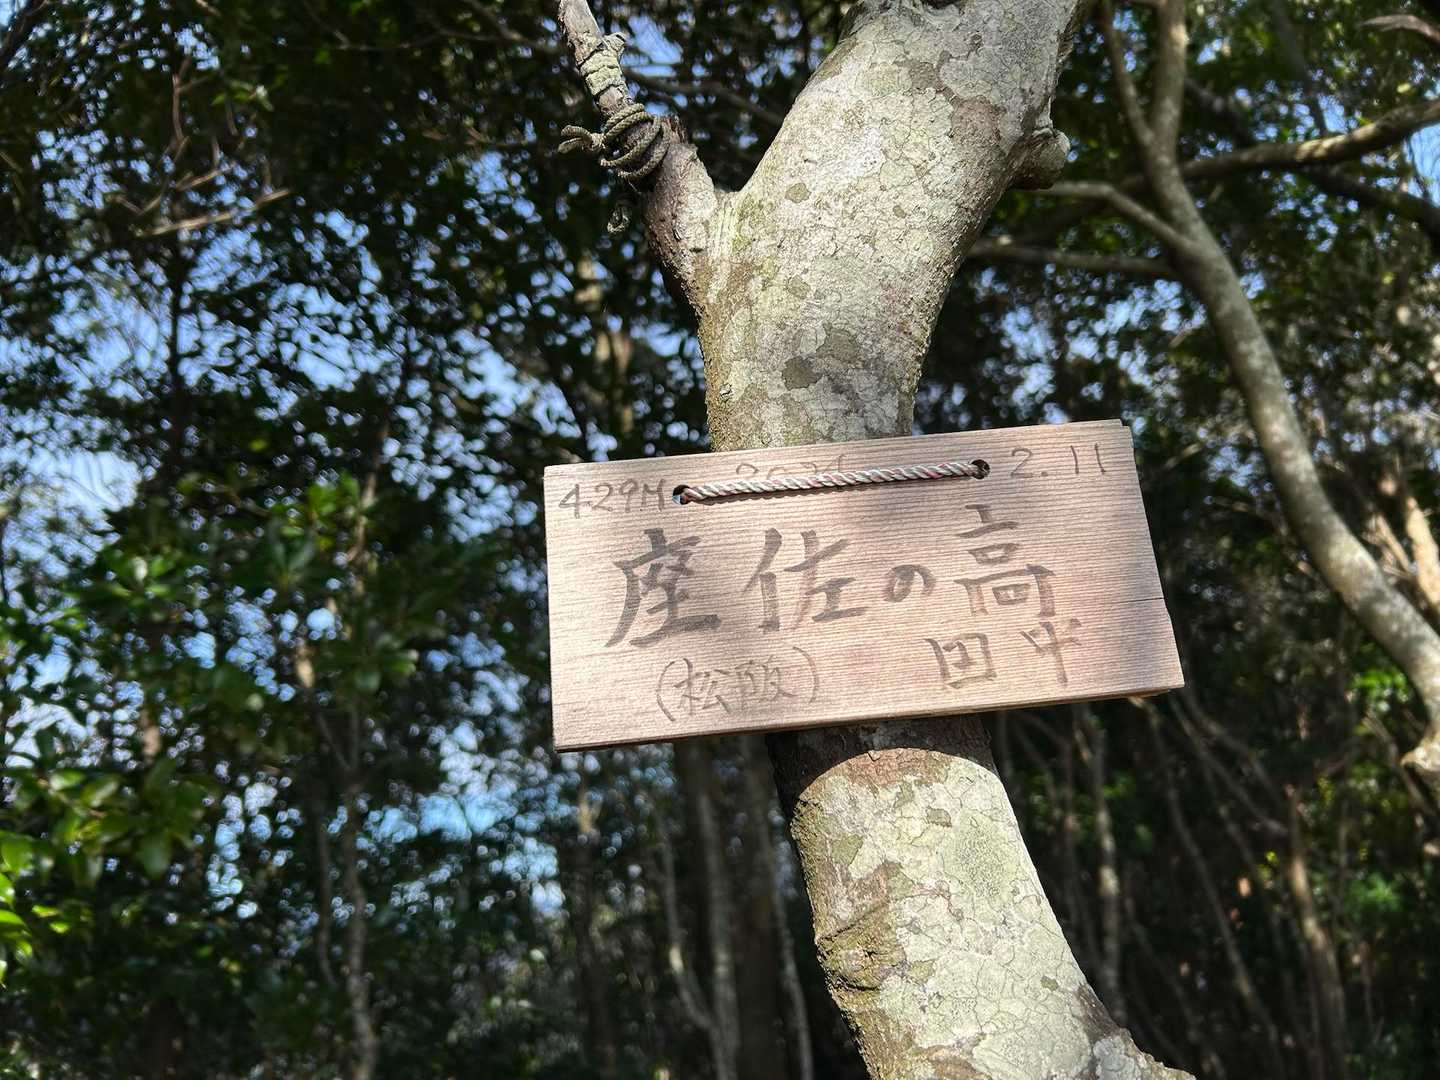 429M 2.11
座佐の高
(松阪) 田中